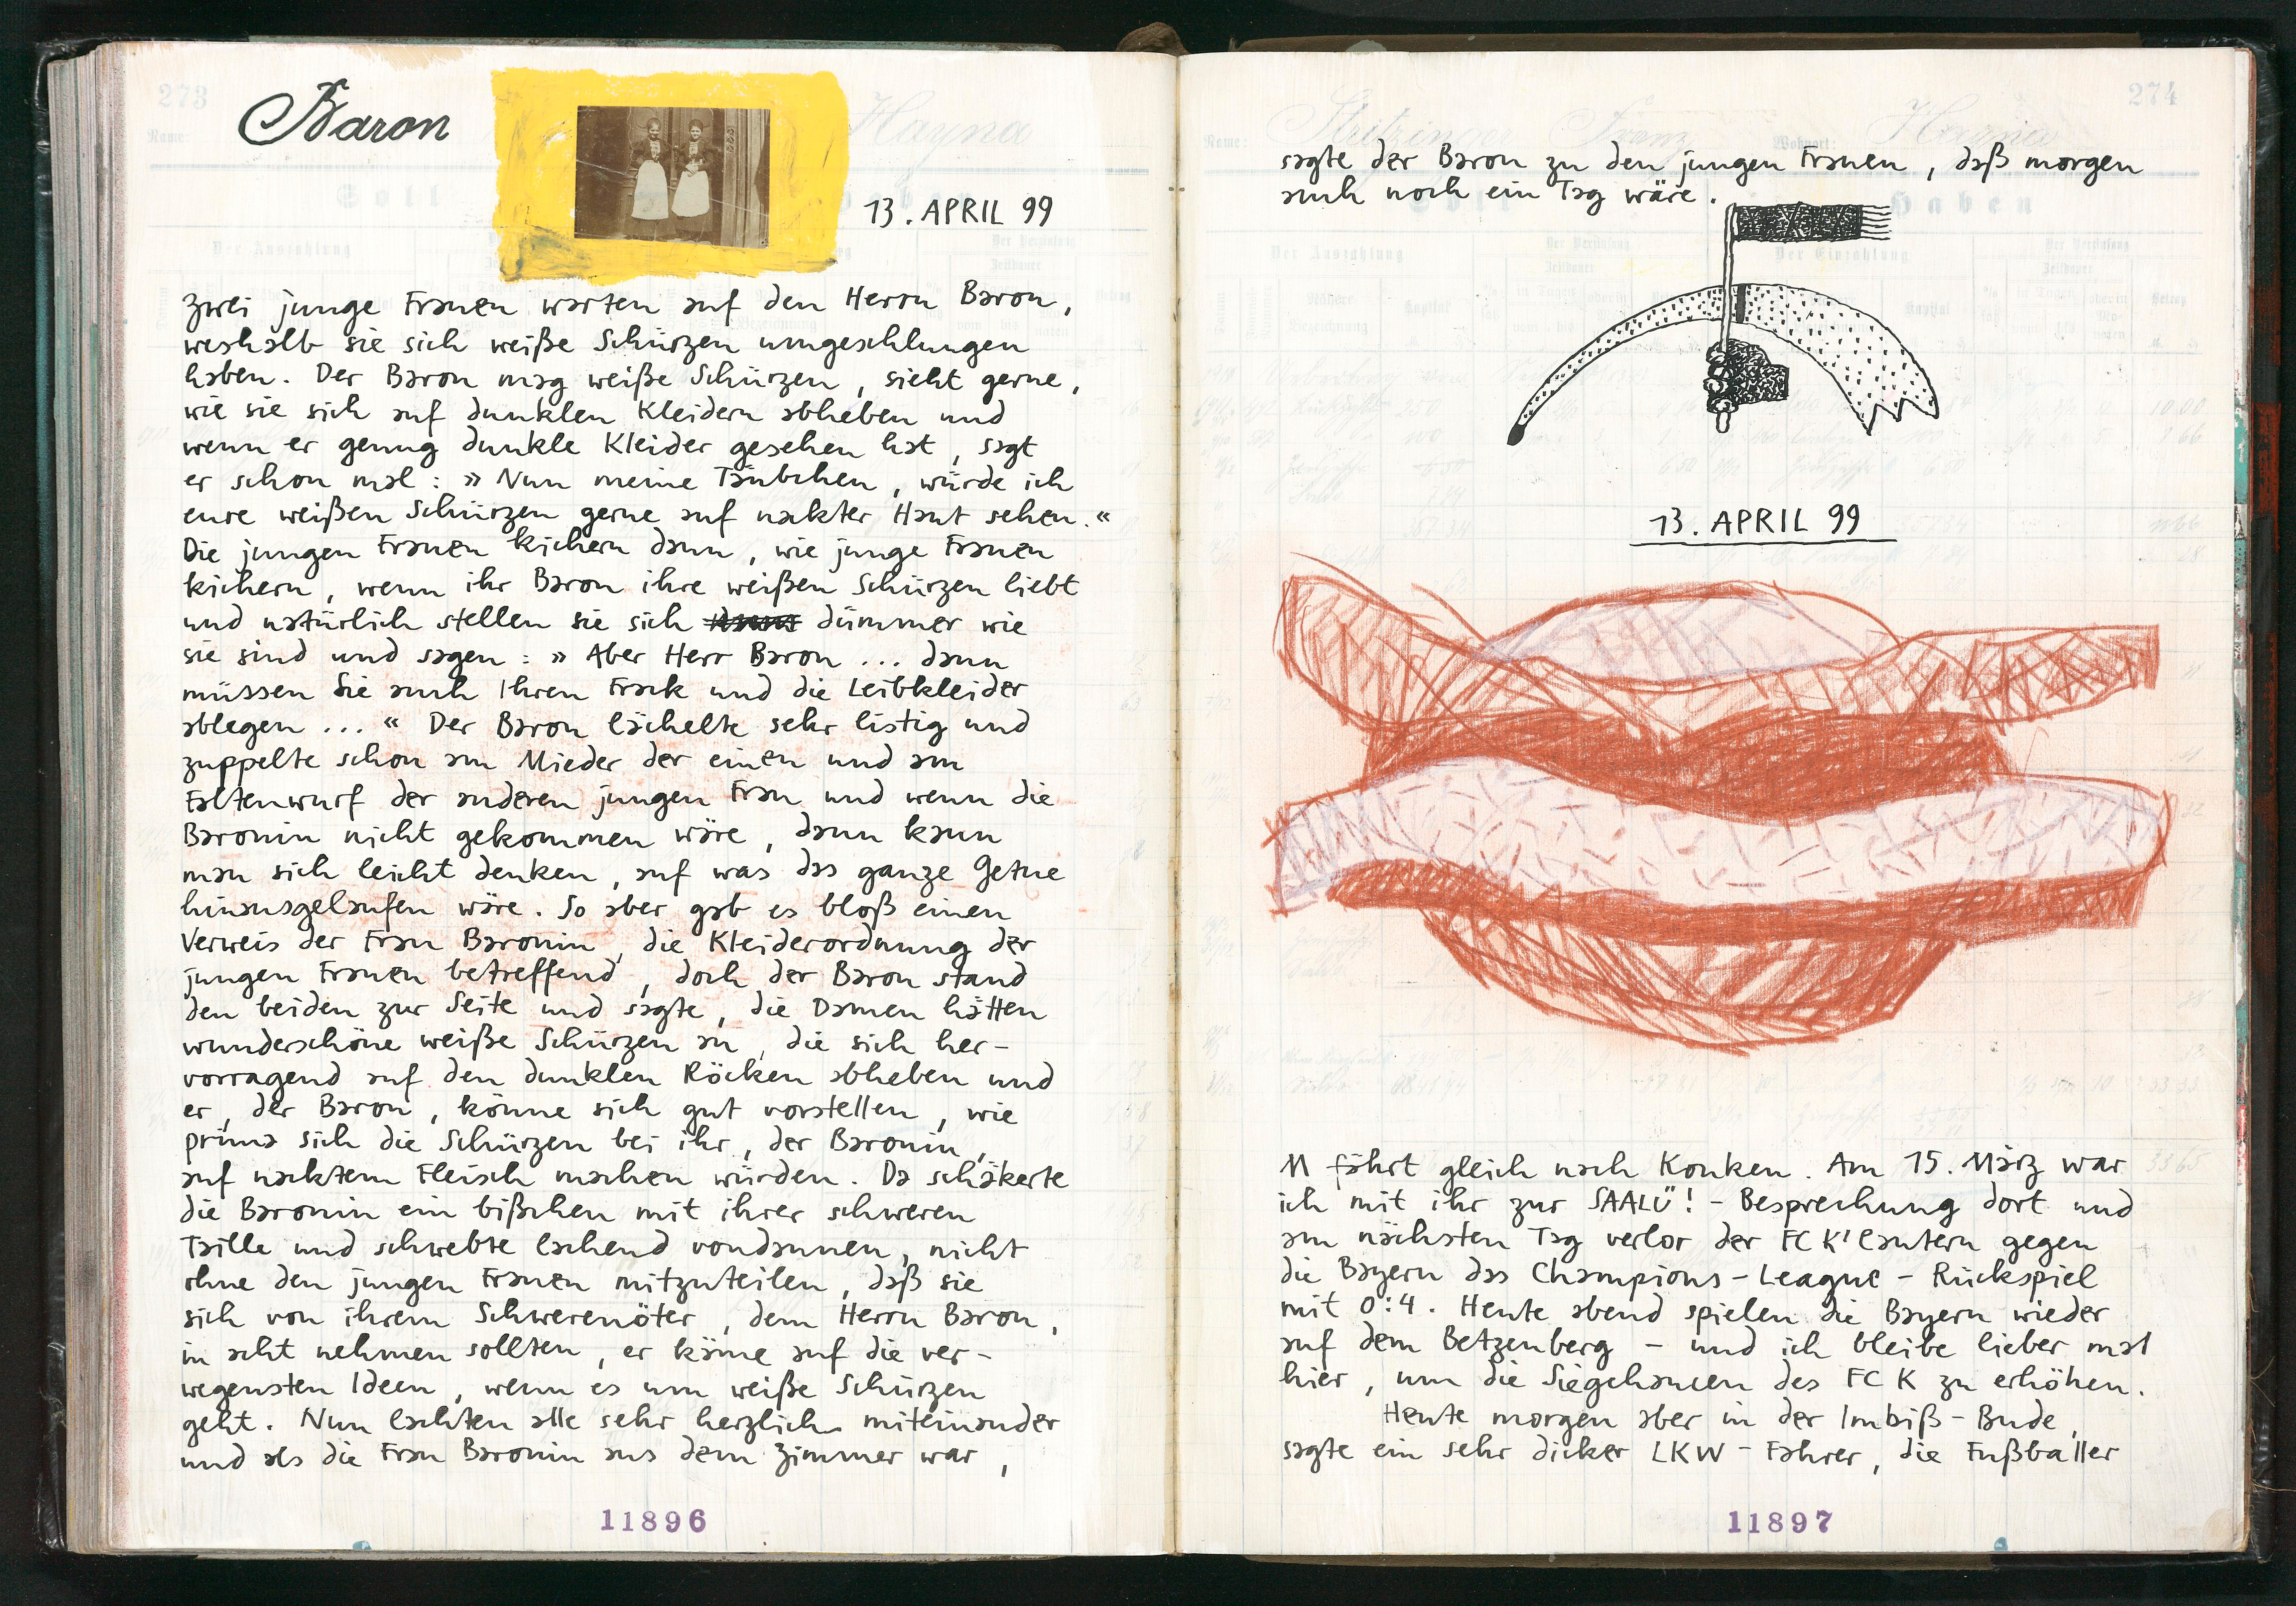 273
Baron
Hayna
Name:
Soll
13. APRIL 99
Der Auszahlung
zwei junge Frauen warten auf den Herrn Baron,
weshalb sie sich weiße Schürzen umgeschlungen
haben. Der Baron mag weiße Schürzen, sieht gerne,
wie sie sich auf dunklen Kleidern abheben und
wenn er genug dunkle Kleider gesehen hat, sagt
er schon mal: » Nun meine Täubchen, würde ich
eure weißen Schürzen gerne auf nakter Haut sehen. «
Die jungen Frauen kichern dann, wie junge Frauen
kichern, wenn ihr Baron ihre weißen Schürzen liebt
und natürlich stellen sie sich dümmer wie
sie sind und sagen: » Aber Herr Baron ... dann
müssen Sie auch Ihren Frack und die Leibkleider
ablegen ... « Der Baron lächelte sehr listig und
zuppelte schon am Mieder der einen und am
Faltenwurf der anderen jungen Frau und wenn die
Baronin nicht gekommen wäre, dann kann
man sich leicht denken, auf was das ganze Getue
hinausgelaufen wäre. So aber gab es bloß einen
Verweis der Frau Baronin, die Kleiderordnung der
jungen Frauen betreffend, doch der Baron stand
den beiden zur Seite und sagte, die Damen hätten
wunderschöne weiße Schürzen an, die sich her-
vorragend auf den dunklen Röcken abheben und
er, der Baron, könne sich gut vorstellen, wie
prima sich die Schürzen bei ihr, der Baronin,
auf nacktem Fleisch machen würden. Da schäkerte
die Baronin ein bißchen mit ihrer schweren
Taille und schwebte lachend vondannen, nicht
ohne den jungen Frauen mitzuteilen, daß sie
sich von ihrem Schwerenöter, dem Herrn Baron,
in acht nehmen sollten, er käme auf die ver-
wegensten Ideen, wenn es um weiße Schürzen
geht. Nun lachten alle sehr herzlich miteinander
und als die Frau Baronin aus dem Zimmer war,
11896
274
Name:
Franz
Wohnort:
Hayna
sagte der Baron zu den jungen Frauen, daß morgen
auch noch ein Tag wäre.
Haben
Der Auszahlung
Der Verzinsung
Der Einzahlung
13. APRIL 99
M fährt gleich nach Konken. Am 15. März war
ich mit ihr zur SAALÜ! - Besprechung dort und
am nächsten Tag verlor der FC K'lautern gegen
die Bayern das Champions - League - Rückspiel
mit 0:4. Heute abend spielen die Bayern wieder
auf dem Betzenberg – und ich bleibe lieber mal
hier, um die Siegchancen des FC K zu erhöhen.
Heute morgen aber in der Imbiß - Bude,
sagte ein sehr dicker LKW - Fahrer, die Fußballer
11897